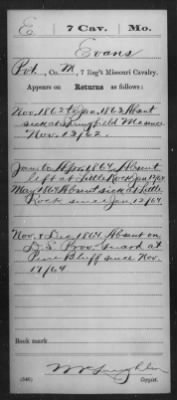 E 7 Cav. Mo.
Evans
Pvt., Co. M, 7 Reg't Missouri Cavalry.
Appears on Returns as follows:
Nov. 1862 to Jan. 1863 Absent
sick at Springfield Mo since
Nov. 12/62.
Jan to Apr. 1864 Absent
left at Little Rock Jan 12/64
May 1864 Absent sick at Little
Rock since Jan. 12/64.
Nov. & Dec. 1864 Absent on
D.S. Prov. Guard at
Pine Bluff since Nov.
17/64
Book mark
(546) Copyist.